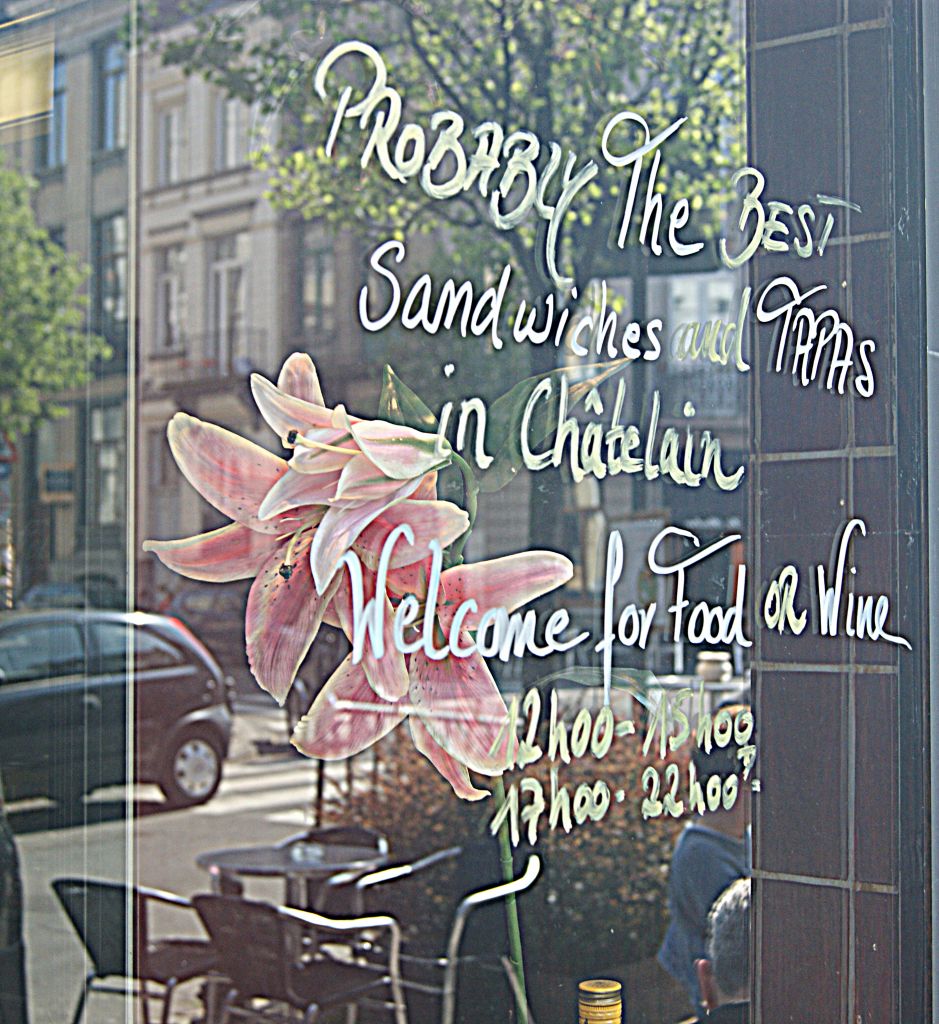 PROBABLY The BEST
Sandwiches and TAPAS
in Châtelain
Welcome for Food or Wine
12h00-15h00
17h00-22h00